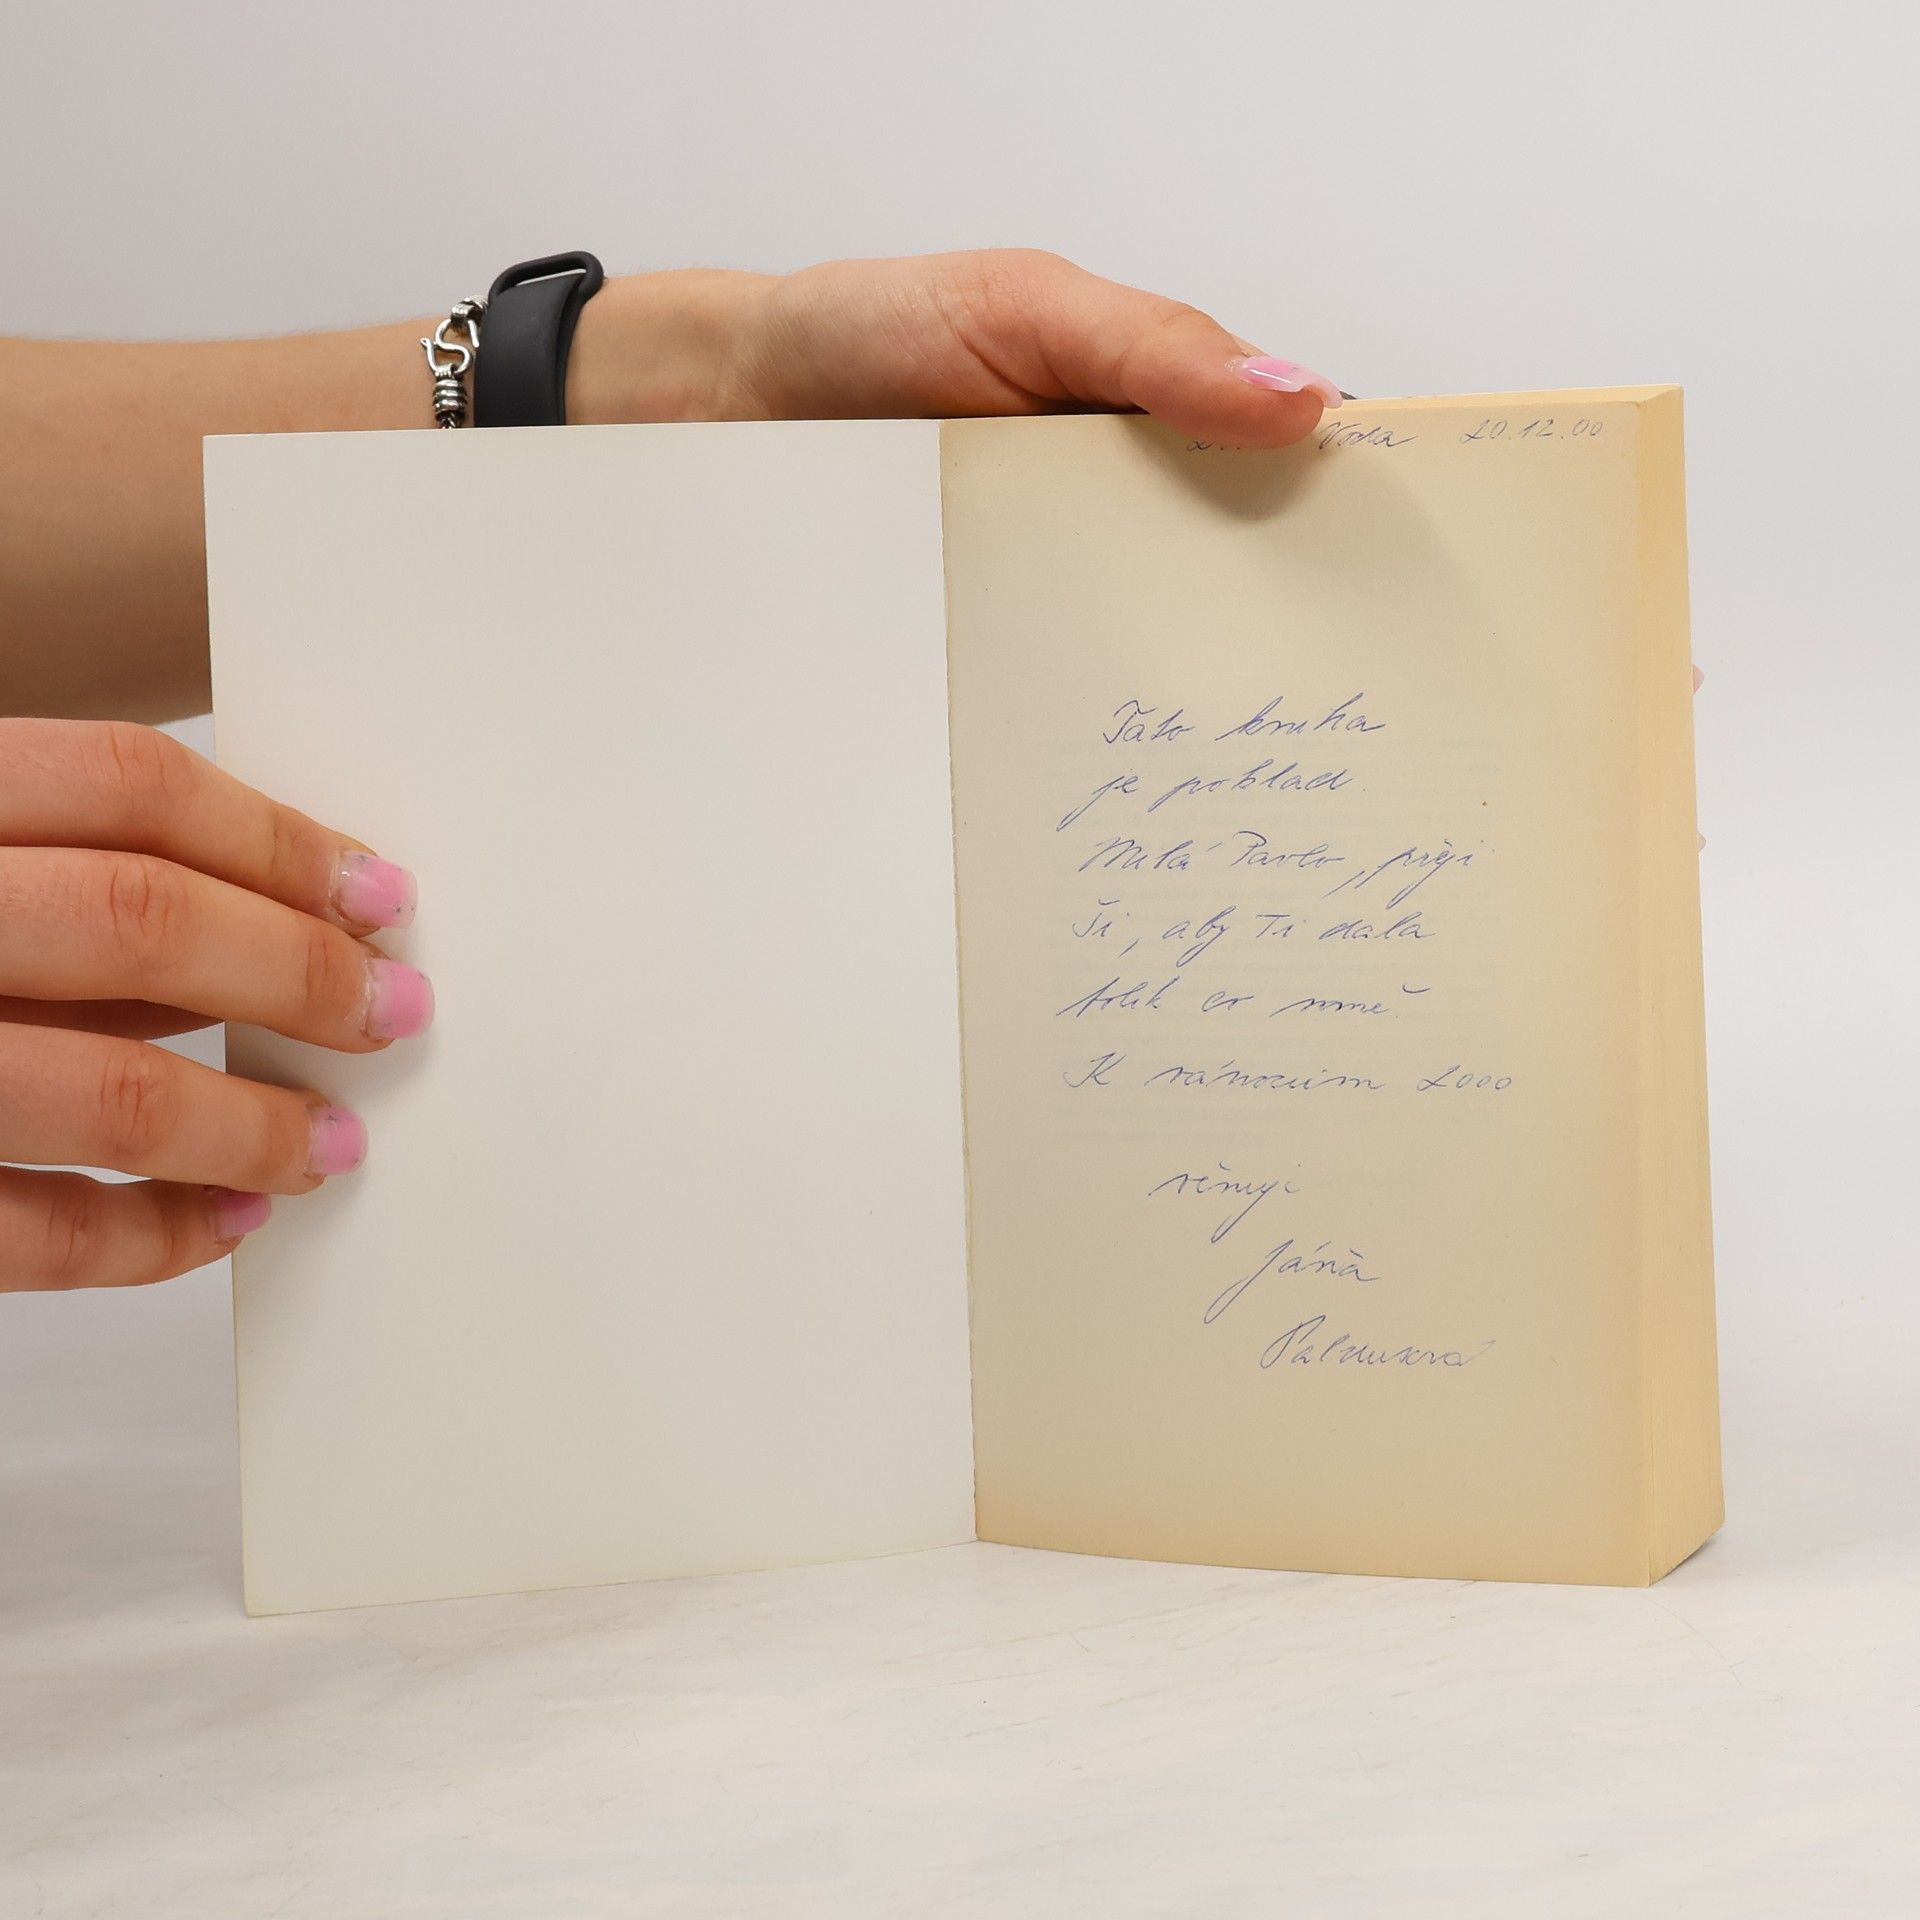 Voda 20.12.00
Tato kniha
je poklad.
Milá Pavlo, přeji
Ti, aby Ti dala
tolik co mně.
K vánocům 2000
věnuji
Jana